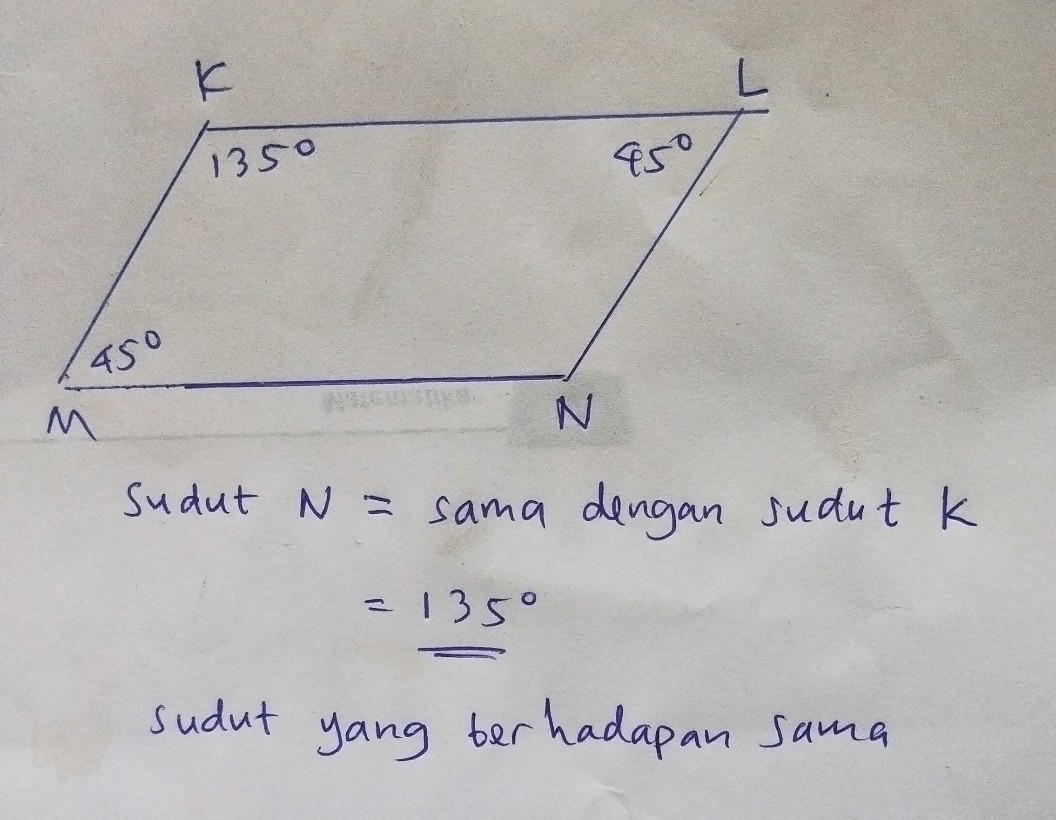 K L
135° 45°
45°
M N
Matematika
Sudut N = sama dengan sudut K
= 135°
sudut yang berhadapan sama